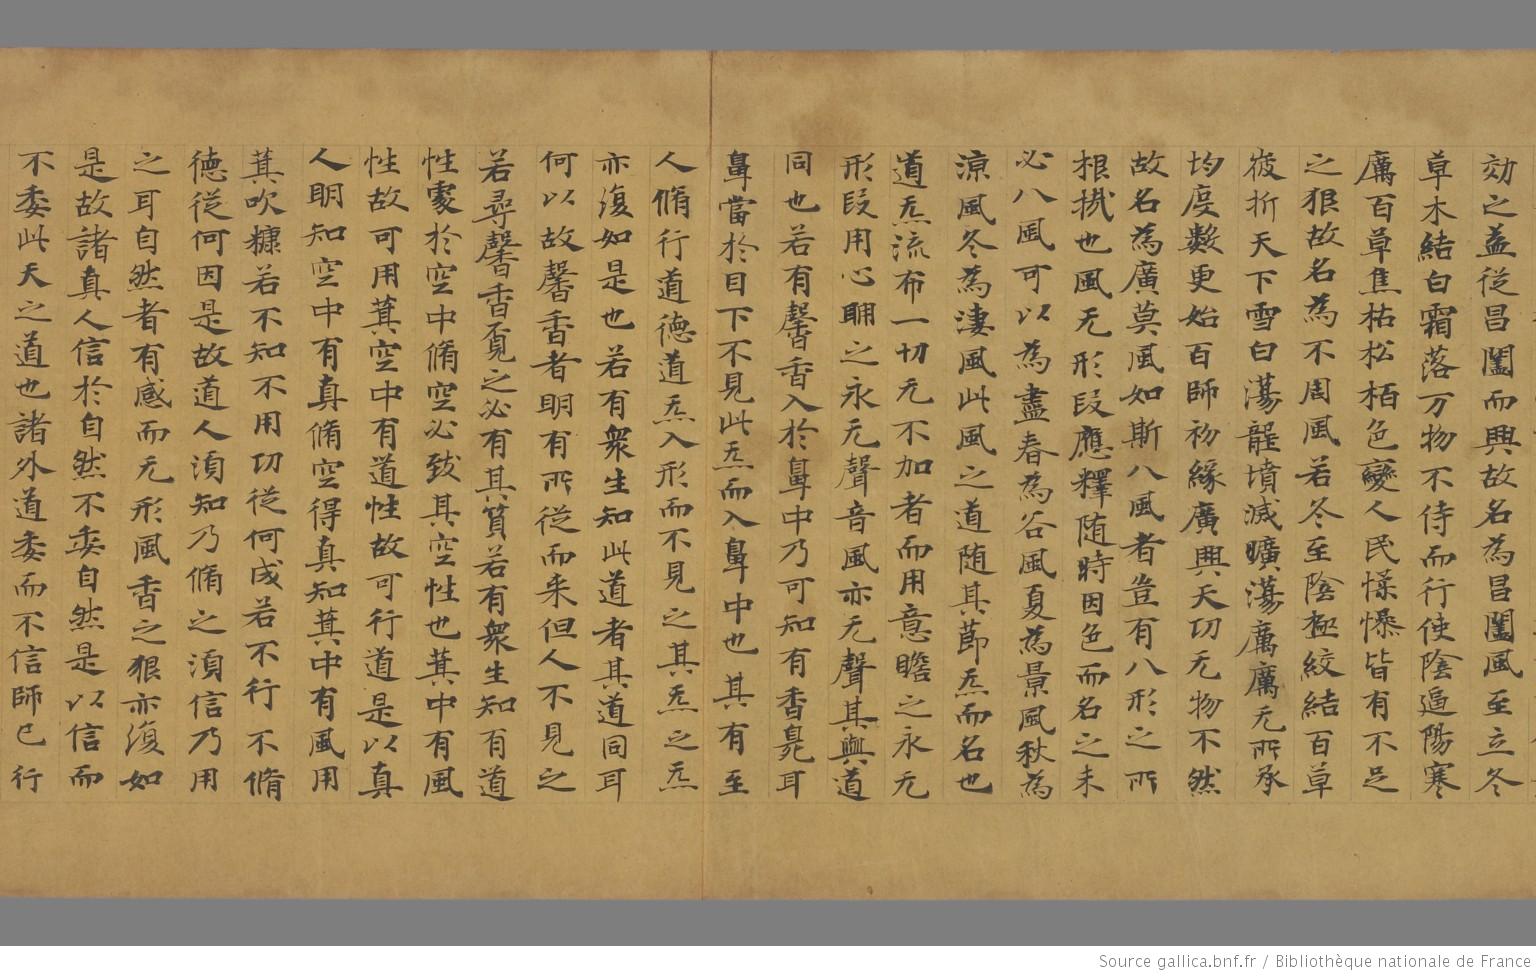 効之盖從昌闔而興故名為昌闔風至立冬
草木結白霜落万物不侍而行使陰遁陽寒
厲百草焦枯松栢色變人民懆懆皆有不足
之狠故名為不周風若冬至陰極絞結百草
摧折天下雪白蕩龍墳滅曠蕩厲厲无所承
均度數更始百師初緣廣興天功无物不然
故名為廣莫風如斯八風者豈有八形之所
根機也風无形段應釋随時因色而名之未
必八風可以為盡春為谷風夏為景風秋為
涼風冬為淒風此風之道随其莭炁而名也
道炁流布一切无不加者而用意瞻之永无
形段用心聽之永无聲音風亦无聲其與道
同也若有馨香入於鼻中乃可知有香臰耳
鼻當於目下不見此炁而入鼻中也其有至
人脩行道德道炁入形而不見之其炁之炁
亦復如是也若有衆生知此道者其道同耳
何以故馨香者明有所從而来但人不見之
若尋馨香覔之必有其質若有衆生知有道
性處於空中脩空必致其空性也萁中有風
性故可用萁空中有道性故可行道是以真
人明知空中有真脩空得真知萁中有風用
萁吹糠若不知不用功從何成若不行不脩
德從何因是故道人湏知乃脩之湏信乃用
之耳自然者有感而无形風香之狠亦復如
是故諸真人信於自然不委自然是以信而
不委此天之道也諸外道委而不信師已行